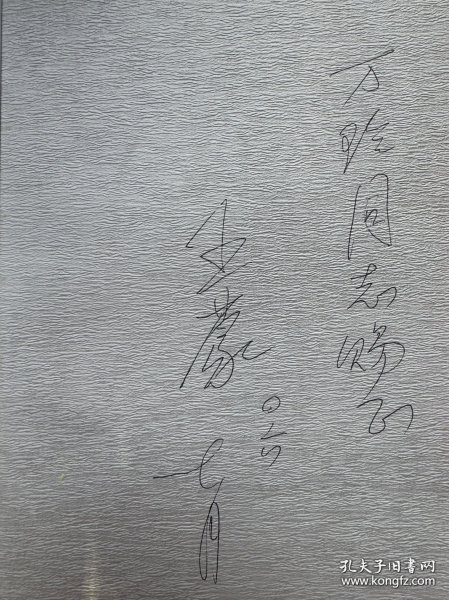 万玲同志赐正
生蒙
〇六
七月
孔夫子旧书网
www.kongfz.com